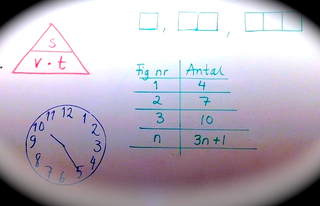 s
v · t
Fig nr Antal
1 4
2 7
3 10
n 3n+1
11 12 1
10 2
9 3
8 4
7 6 5